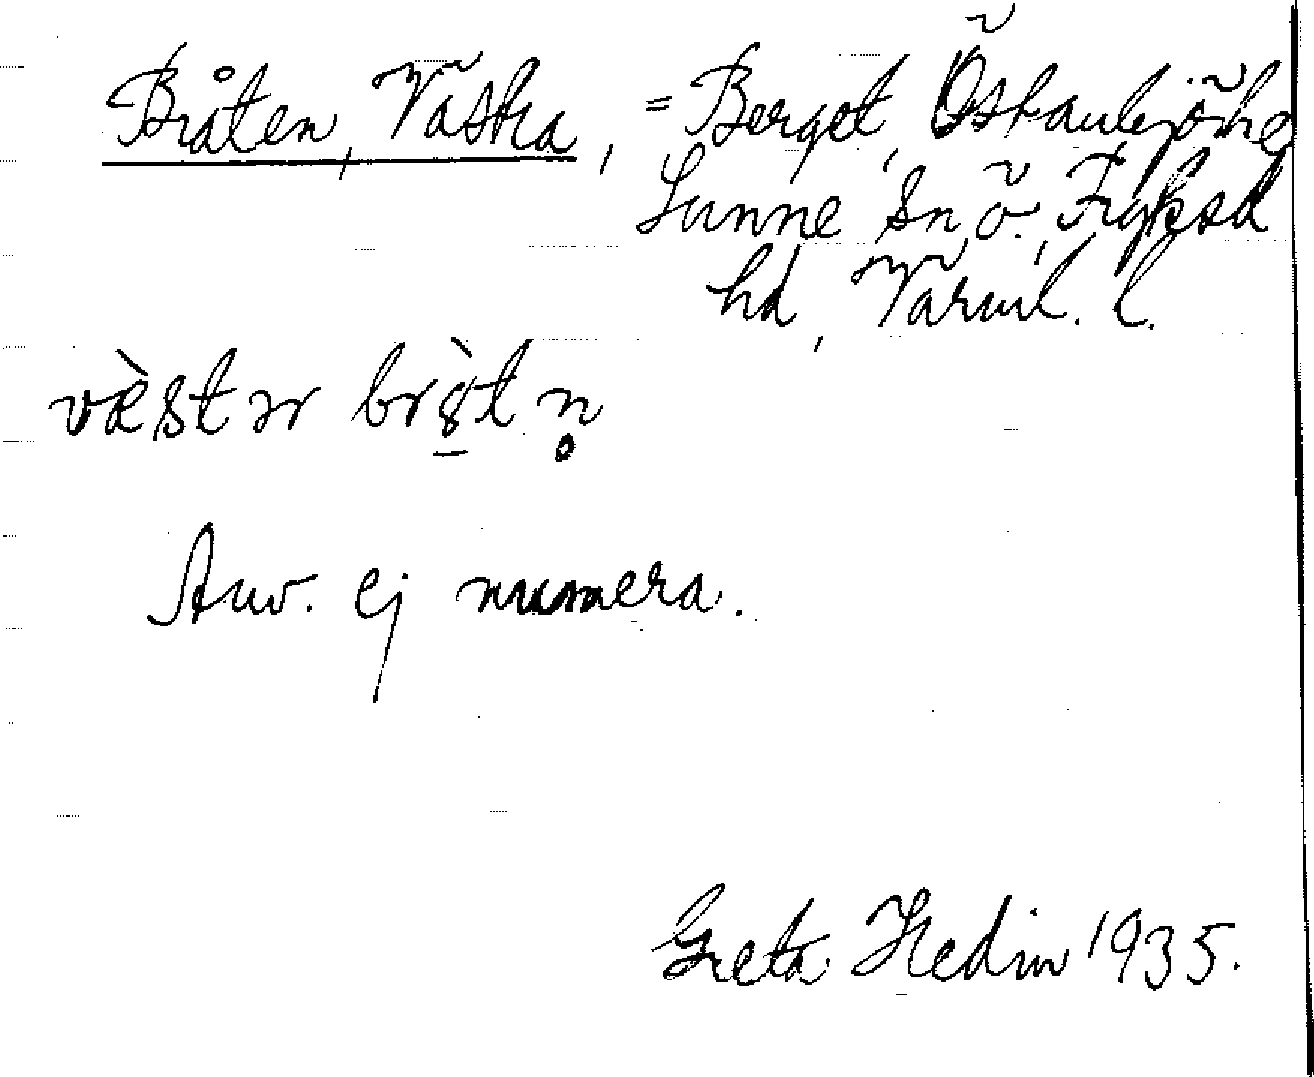 Bråten, Västra, = Berget, Östanbjörke
Sunne sn ö., Fryksd
hd, Värml. l.
væ̀stər brò̱tn̥
Anv. ej numera.
Greta Hedin 1935.